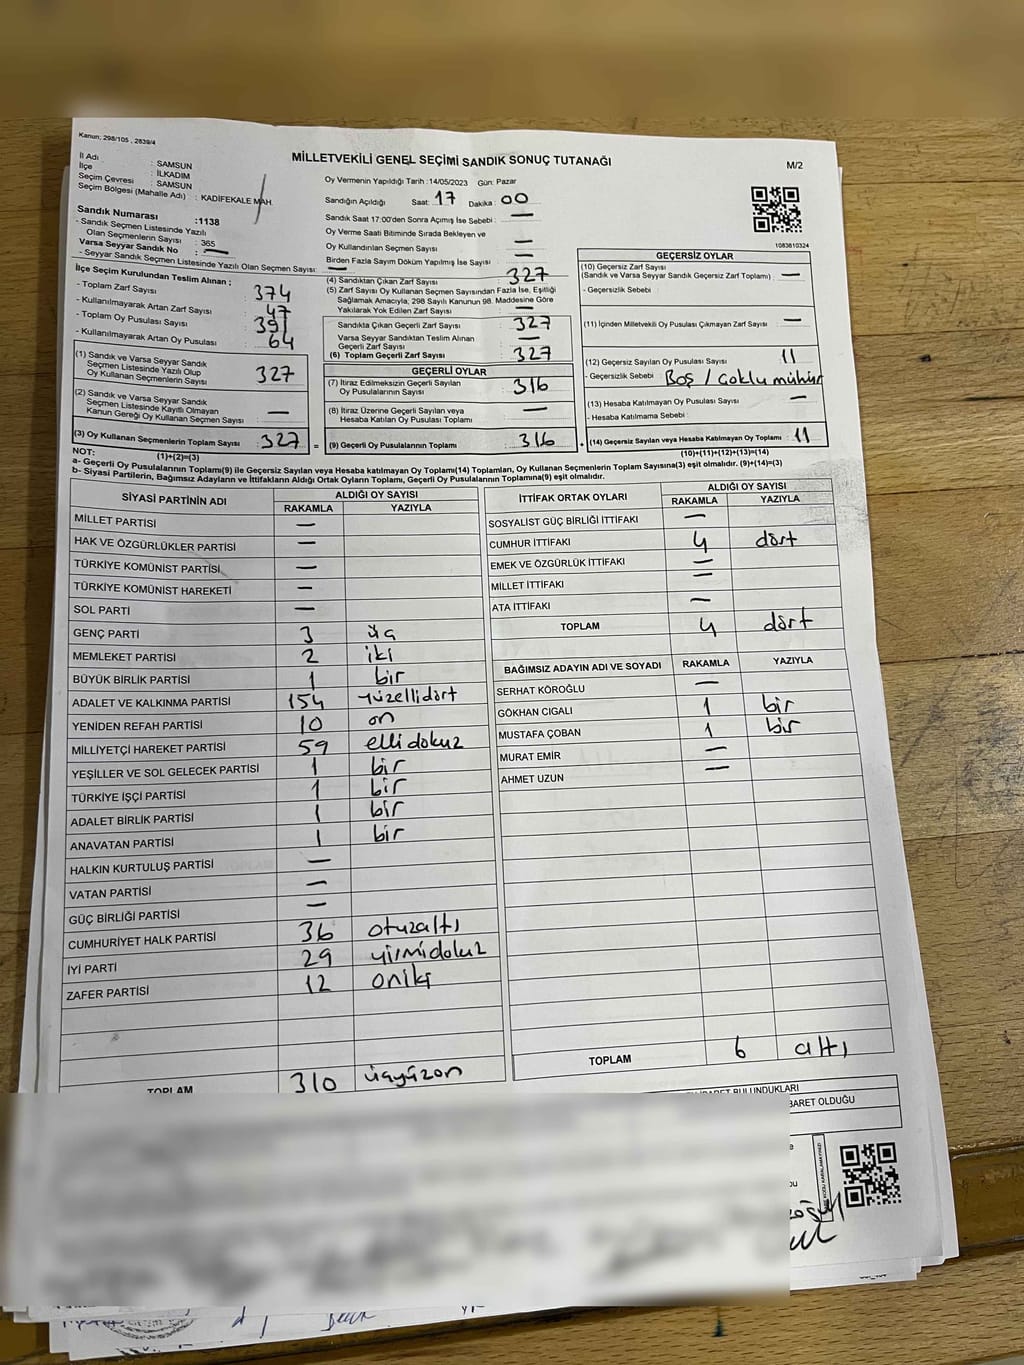 Kanun; 298/105 , 2839/4
MİLLETVEKİLİ GENEL SEÇİMİ SANDIK SONUÇ TUTANAĞI
M/2
İl Adı : SAMSUN
İlçe : İLKADIM
Seçim Çevresi : SAMSUN
Seçim Bölgesi (Mahalle Adı) : KADİFEKALE MAH.
Sandık Numarası :1138
- Sandık Seçmen Listesinde Yazılı
Olan Seçmenlerin Sayısı : 365
Varsa Seyyar Sandık No : —
- Seyyar Sandık Seçmen Listesinde Yazılı Olan Seçmen Sayısı: —
İlçe Seçim Kurulundan Teslim Alınan ;
- Toplam Zarf Sayısı 374
- Kullanılmayarak Artan Zarf Sayısı 47
- Toplam Oy Pusulası Sayısı 391
- Kullanılmayarak Artan Oy Pusulası 64
(1) Sandık ve Varsa Seyyar Sandık
Seçmen Listesinde Yazılı Olup
Oy Kullanan Seçmenlerin Sayısı 327
(2) Sandık ve Varsa Seyyar Sandık
Seçmen Listesinde Kayıtlı Olmayan
Kanun Gereği Oy Kullanan Seçmen Sayısı —
(3) Oy Kullanan Seçmenlerin Toplam Sayısı 327 =
(1)+(2)=(3)
Oy Vermenin Yapıldığı Tarih :14/05/2023 Gün: Pazar
Sandığın Açıldığı Saat: 17 Dakika: 00
Sandık Saat 17:00'den Sonra Açımış İse Sebebi : —
Oy Verme Saati Bitiminde Sırada Bekleyen ve
Oy Kullandırılan Seçmen Sayısı —
Birden Fazla Sayım Döküm Yapılmış İse Sayısı —
(4) Sandıktan Çıkan Zarf Sayısı 327
(5) Zarf Sayısı Oy Kullanan Seçmen Sayısından Fazla İse, Eşitliği
Sağlamak Amacıyla, 298 Sayılı Kanunun 98. Maddesine Göre
Yakılarak Yok Edilen Zarf Sayısı —
Sandıkta Çıkan Geçerli Zarf Sayısı 327
Varsa Seyyar Sandıktan Teslim Alınan
Geçerli Zarf Sayısı —
(6) Toplam Geçerli Zarf Sayısı 327
GEÇERLİ OYLAR
(7) İtiraz Edilmeksizin Geçerli Sayılan
Oy Pusulalarının Sayısı 316
(8) İtiraz Üzerine Geçerli Sayılan veya
Hesaba Katılan Oy Pusulası Toplamı —
(9) Geçerli Oy Pusulalarının Toplamı 316 +
1083810324
GEÇERSİZ OYLAR
(10) Geçersiz Zarf Sayısı
(Sandık ve Varsa Seyyar Sandık Geçersiz Zarf Toplamı) —
- Geçersizlik Sebebi :
(11) İçinden Milletvekili Oy Pusulası Çıkmayan Zarf Sayısı —
(12) Geçersiz Sayılan Oy Pusulası Sayısı 11
- Geçersizlik Sebebi Boş / Çoklu mühür
(13) Hesaba Katılmayan Oy Pusulası Sayısı —
- Hesaba Katılmama Sebebi :
(14) Geçersiz Sayılan veya Hesaba Katılmayan Oy Toplamı 11
(10)+(11)+(12)+(13)=(14)
NOT:
a- Geçerli Oy Pusulalarının Toplamı(9) ile Geçersiz Sayılan veya Hesaba katılmayan Oy Toplamı(14) Toplamları, Oy Kullanan Seçmenlerin Toplam Sayısına(3) eşit olmalıdır. (9)+(14)=(3)
b- Siyasi Partilerin, Bağımsız Adayların ve İttifakların Aldığı Ortak Oyların Toplamı, Geçerli Oy Pusulalarının Toplamına(9) eşit olmalıdır.
SİYASİ PARTİNİN ADI ALDIĞI OY SAYISI
RAKAMLA YAZIYLA
MİLLET PARTİSİ —
HAK VE ÖZGÜRLÜKLER PARTİSİ —
TÜRKİYE KOMÜNİST PARTİSİ —
TÜRKİYE KOMÜNİST HAREKETİ —
SOL PARTİ —
GENÇ PARTİ 3 üç
MEMLEKET PARTİSİ 2 iki
BÜYÜK BİRLİK PARTİSİ 1 bir
ADALET VE KALKINMA PARTİSİ 154 yüzellidört
YENİDEN REFAH PARTİSİ 10 on
MİLLİYETÇİ HAREKET PARTİSİ 59 ellidokuz
YEŞİLLER VE SOL GELECEK PARTİSİ 1 bir
TÜRKİYE İŞÇİ PARTİSİ 1 bir
ADALET BİRLİK PARTİSİ 1 bir
ANAVATAN PARTİSİ 1 bir
HALKIN KURTULUŞ PARTİSİ —
VATAN PARTİSİ —
GÜÇ BİRLİĞİ PARTİSİ —
CUMHURİYET HALK PARTİSİ 36 otuzaltı
İYİ PARTİ 29 yirmidokuz
ZAFER PARTİSİ 12 oniki
TOPLAM 310 üçyüzon
İTTİFAK ORTAK OYLARI ALDIĞI OY SAYISI
RAKAMLA YAZIYLA
SOSYALİST GÜÇ BİRLİĞİ İTTİFAKI —
CUMHUR İTTİFAKI 4 dört
EMEK VE ÖZGÜRLÜK İTTİFAKI —
MİLLET İTTİFAKI —
ATA İTTİFAKI —
TOPLAM 4 dört
BAĞIMSIZ ADAYIN ADI VE SOYADI RAKAMLA YAZIYLA
SERHAT KÖROĞLU —
GÖKHAN CIGALI 1 bir
MUSTAFA ÇOBAN 1 bir
MURAT EMİR —
AHMET UZUN —
TOPLAM 6 altı
BULUNDUKLARI
BARET OLDUĞU